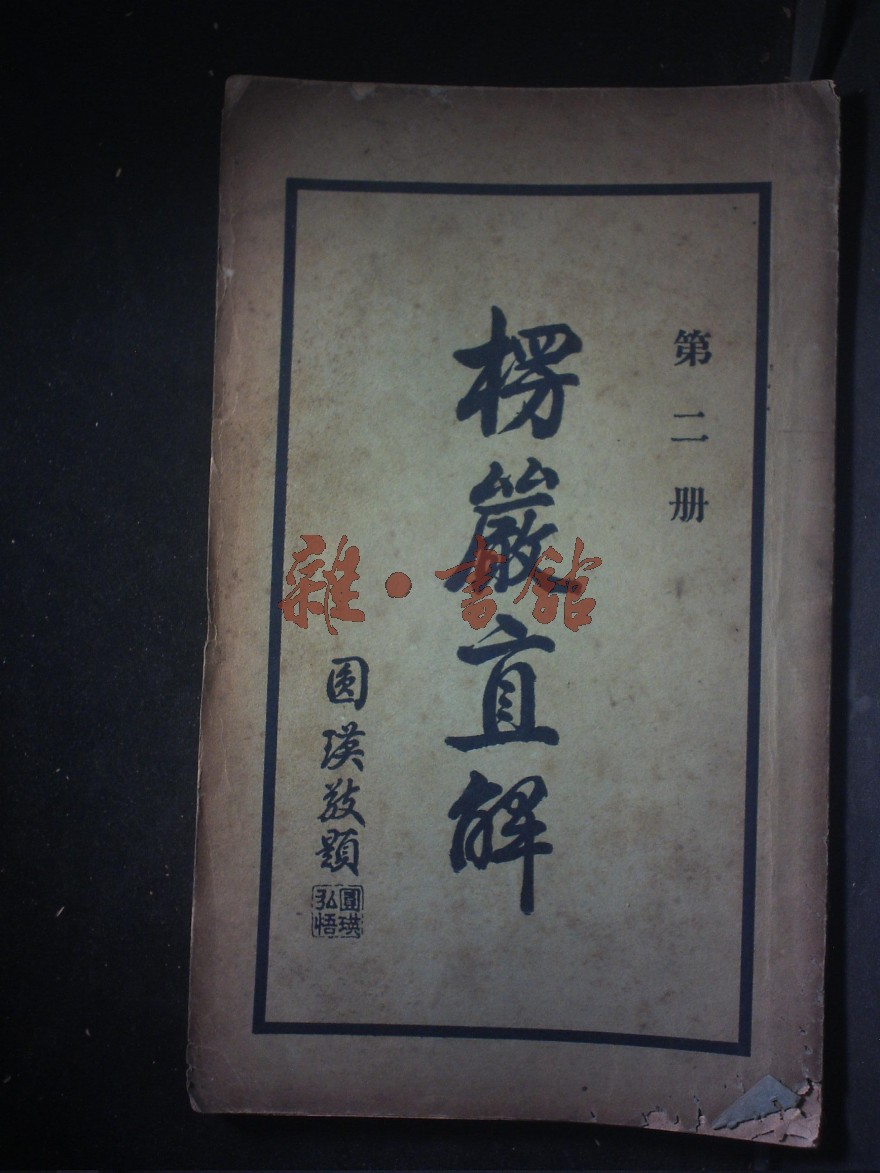 第二册
楞嚴直解
圓瑛敬題
圓瑛弘悟
雜·書館